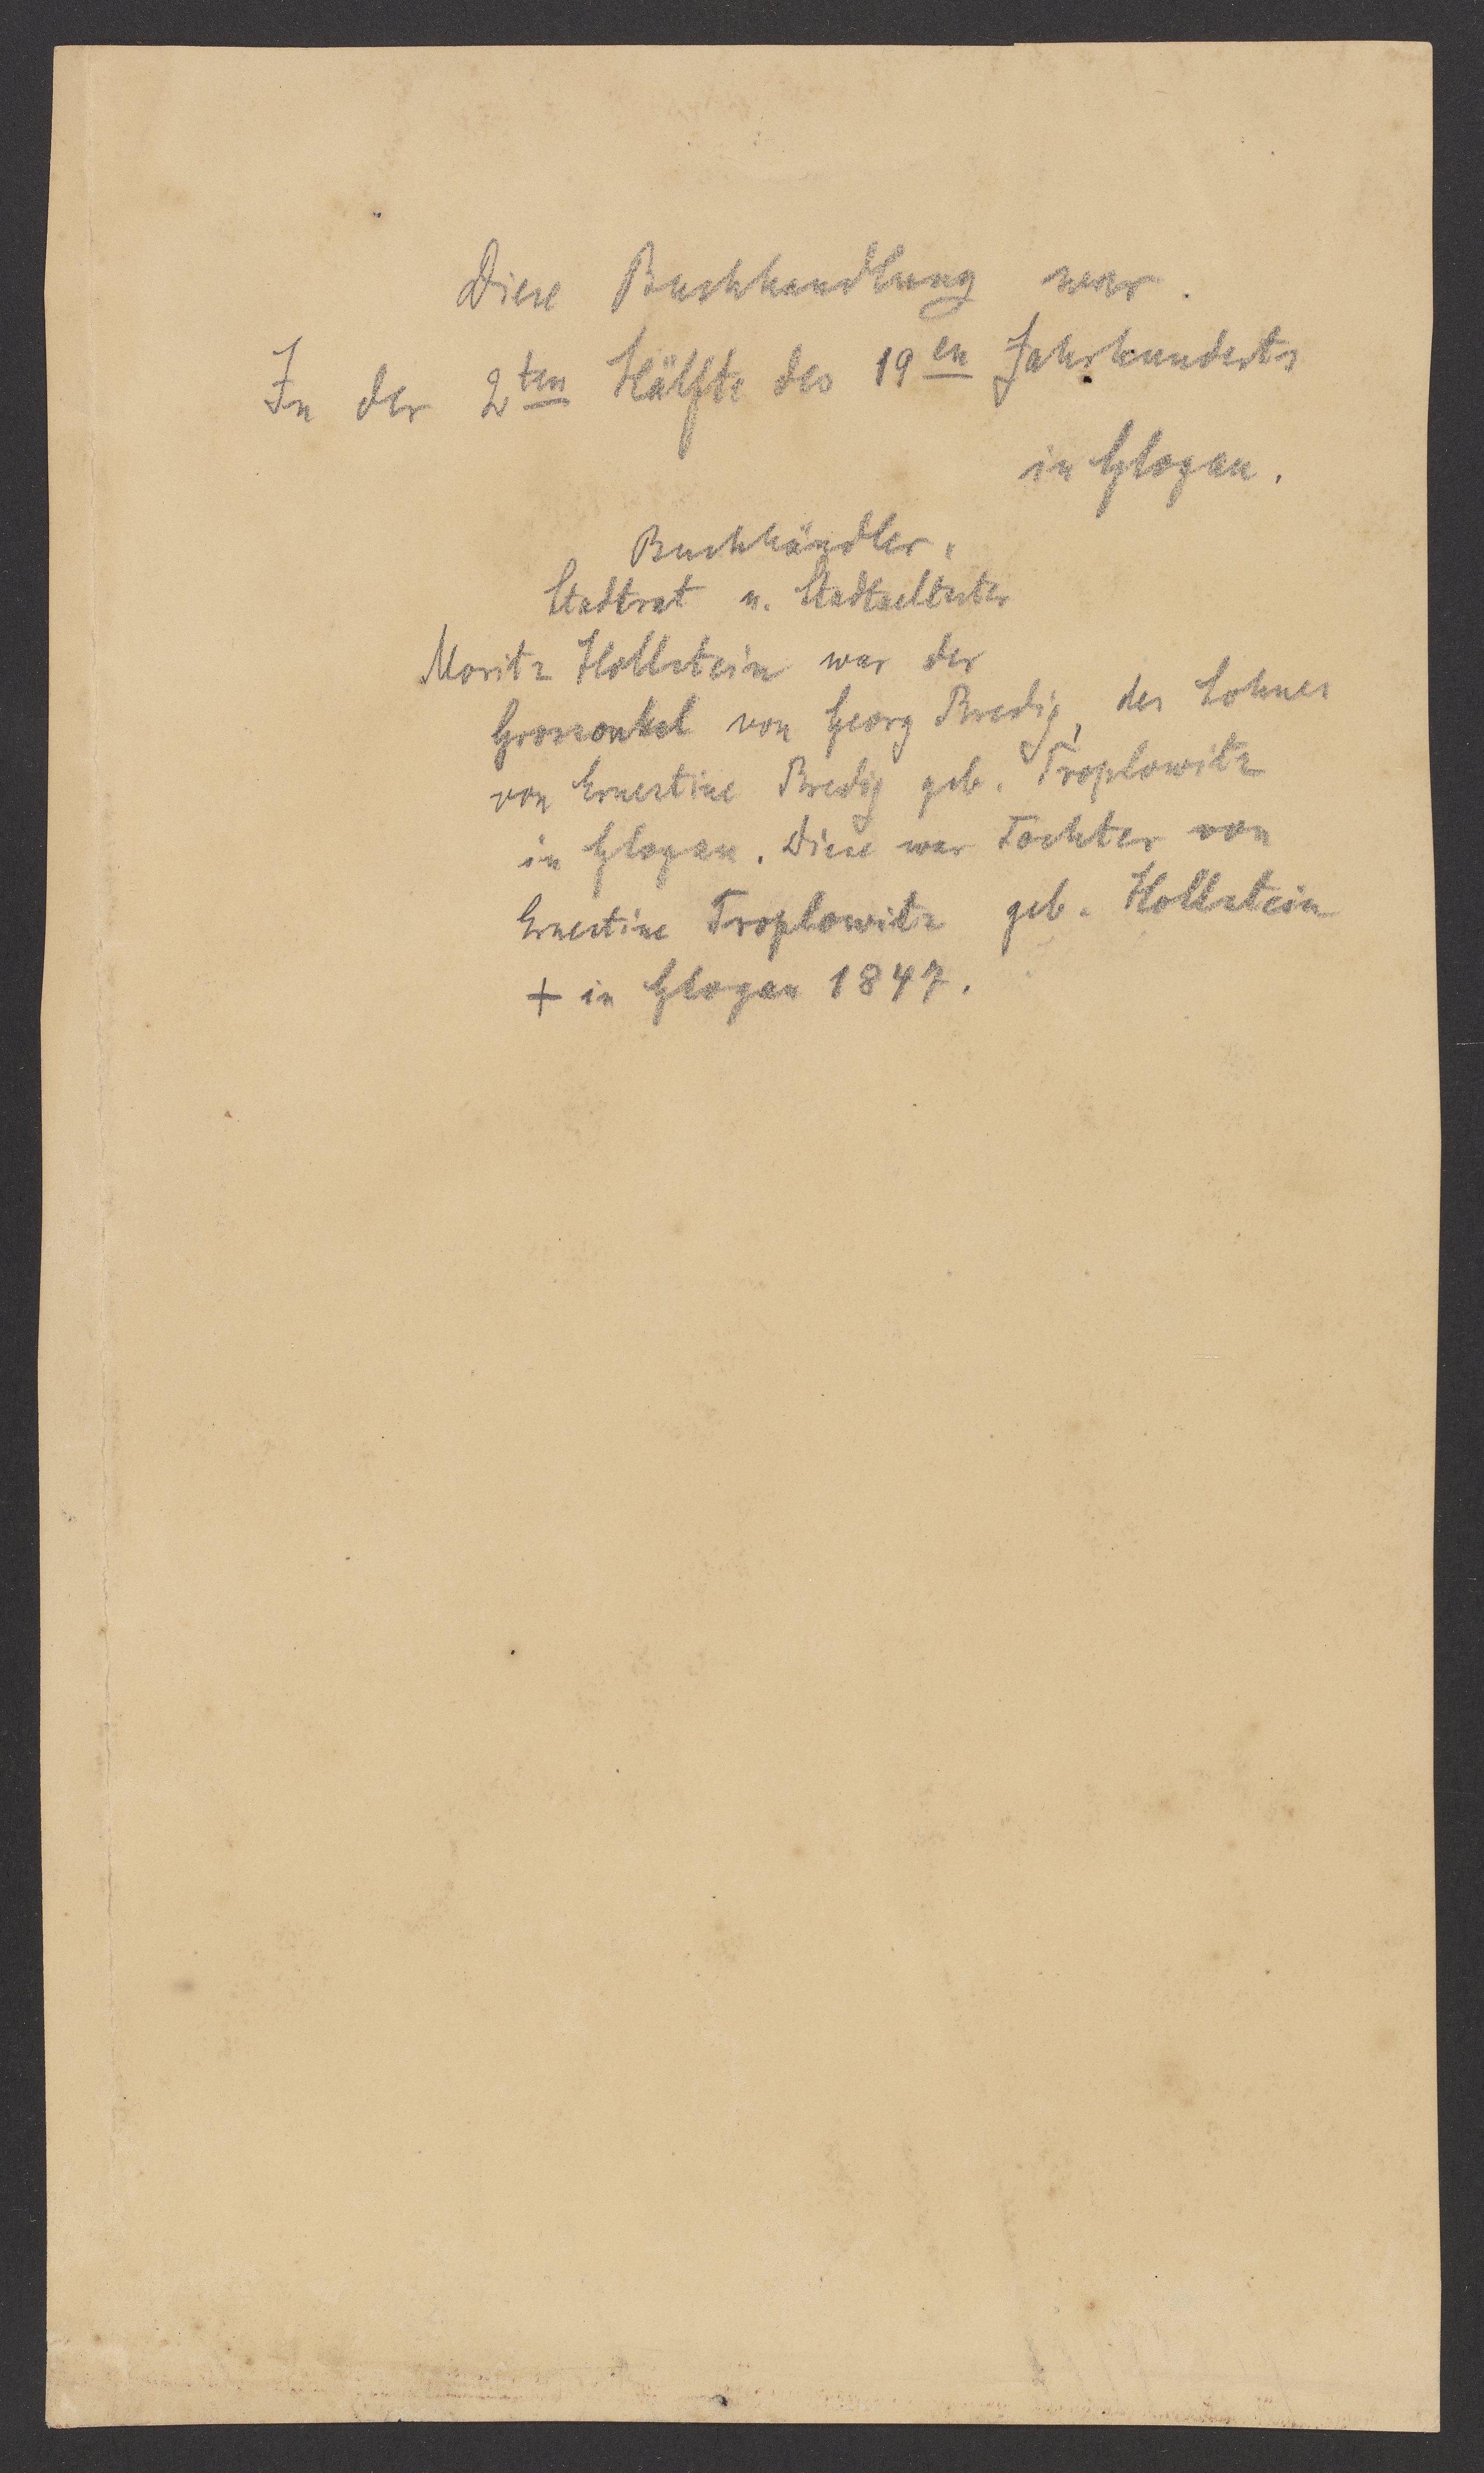 Diese Buchhandlung war.
In der 2ten Hälfte des 19en Jahrhunderts
in Glogau.
Buchhändler,
Stadtrat u. Stadtaeltester
Moritz Hollstein war der
Grossonkel von Georg Bredig, des Sohnes
von Ernestine Bredig geb. Troplowitz
in Glogau. Diese war Tochter von
Ernestine Troplowitz geb. Hollstein
+ in Glogau 1847.